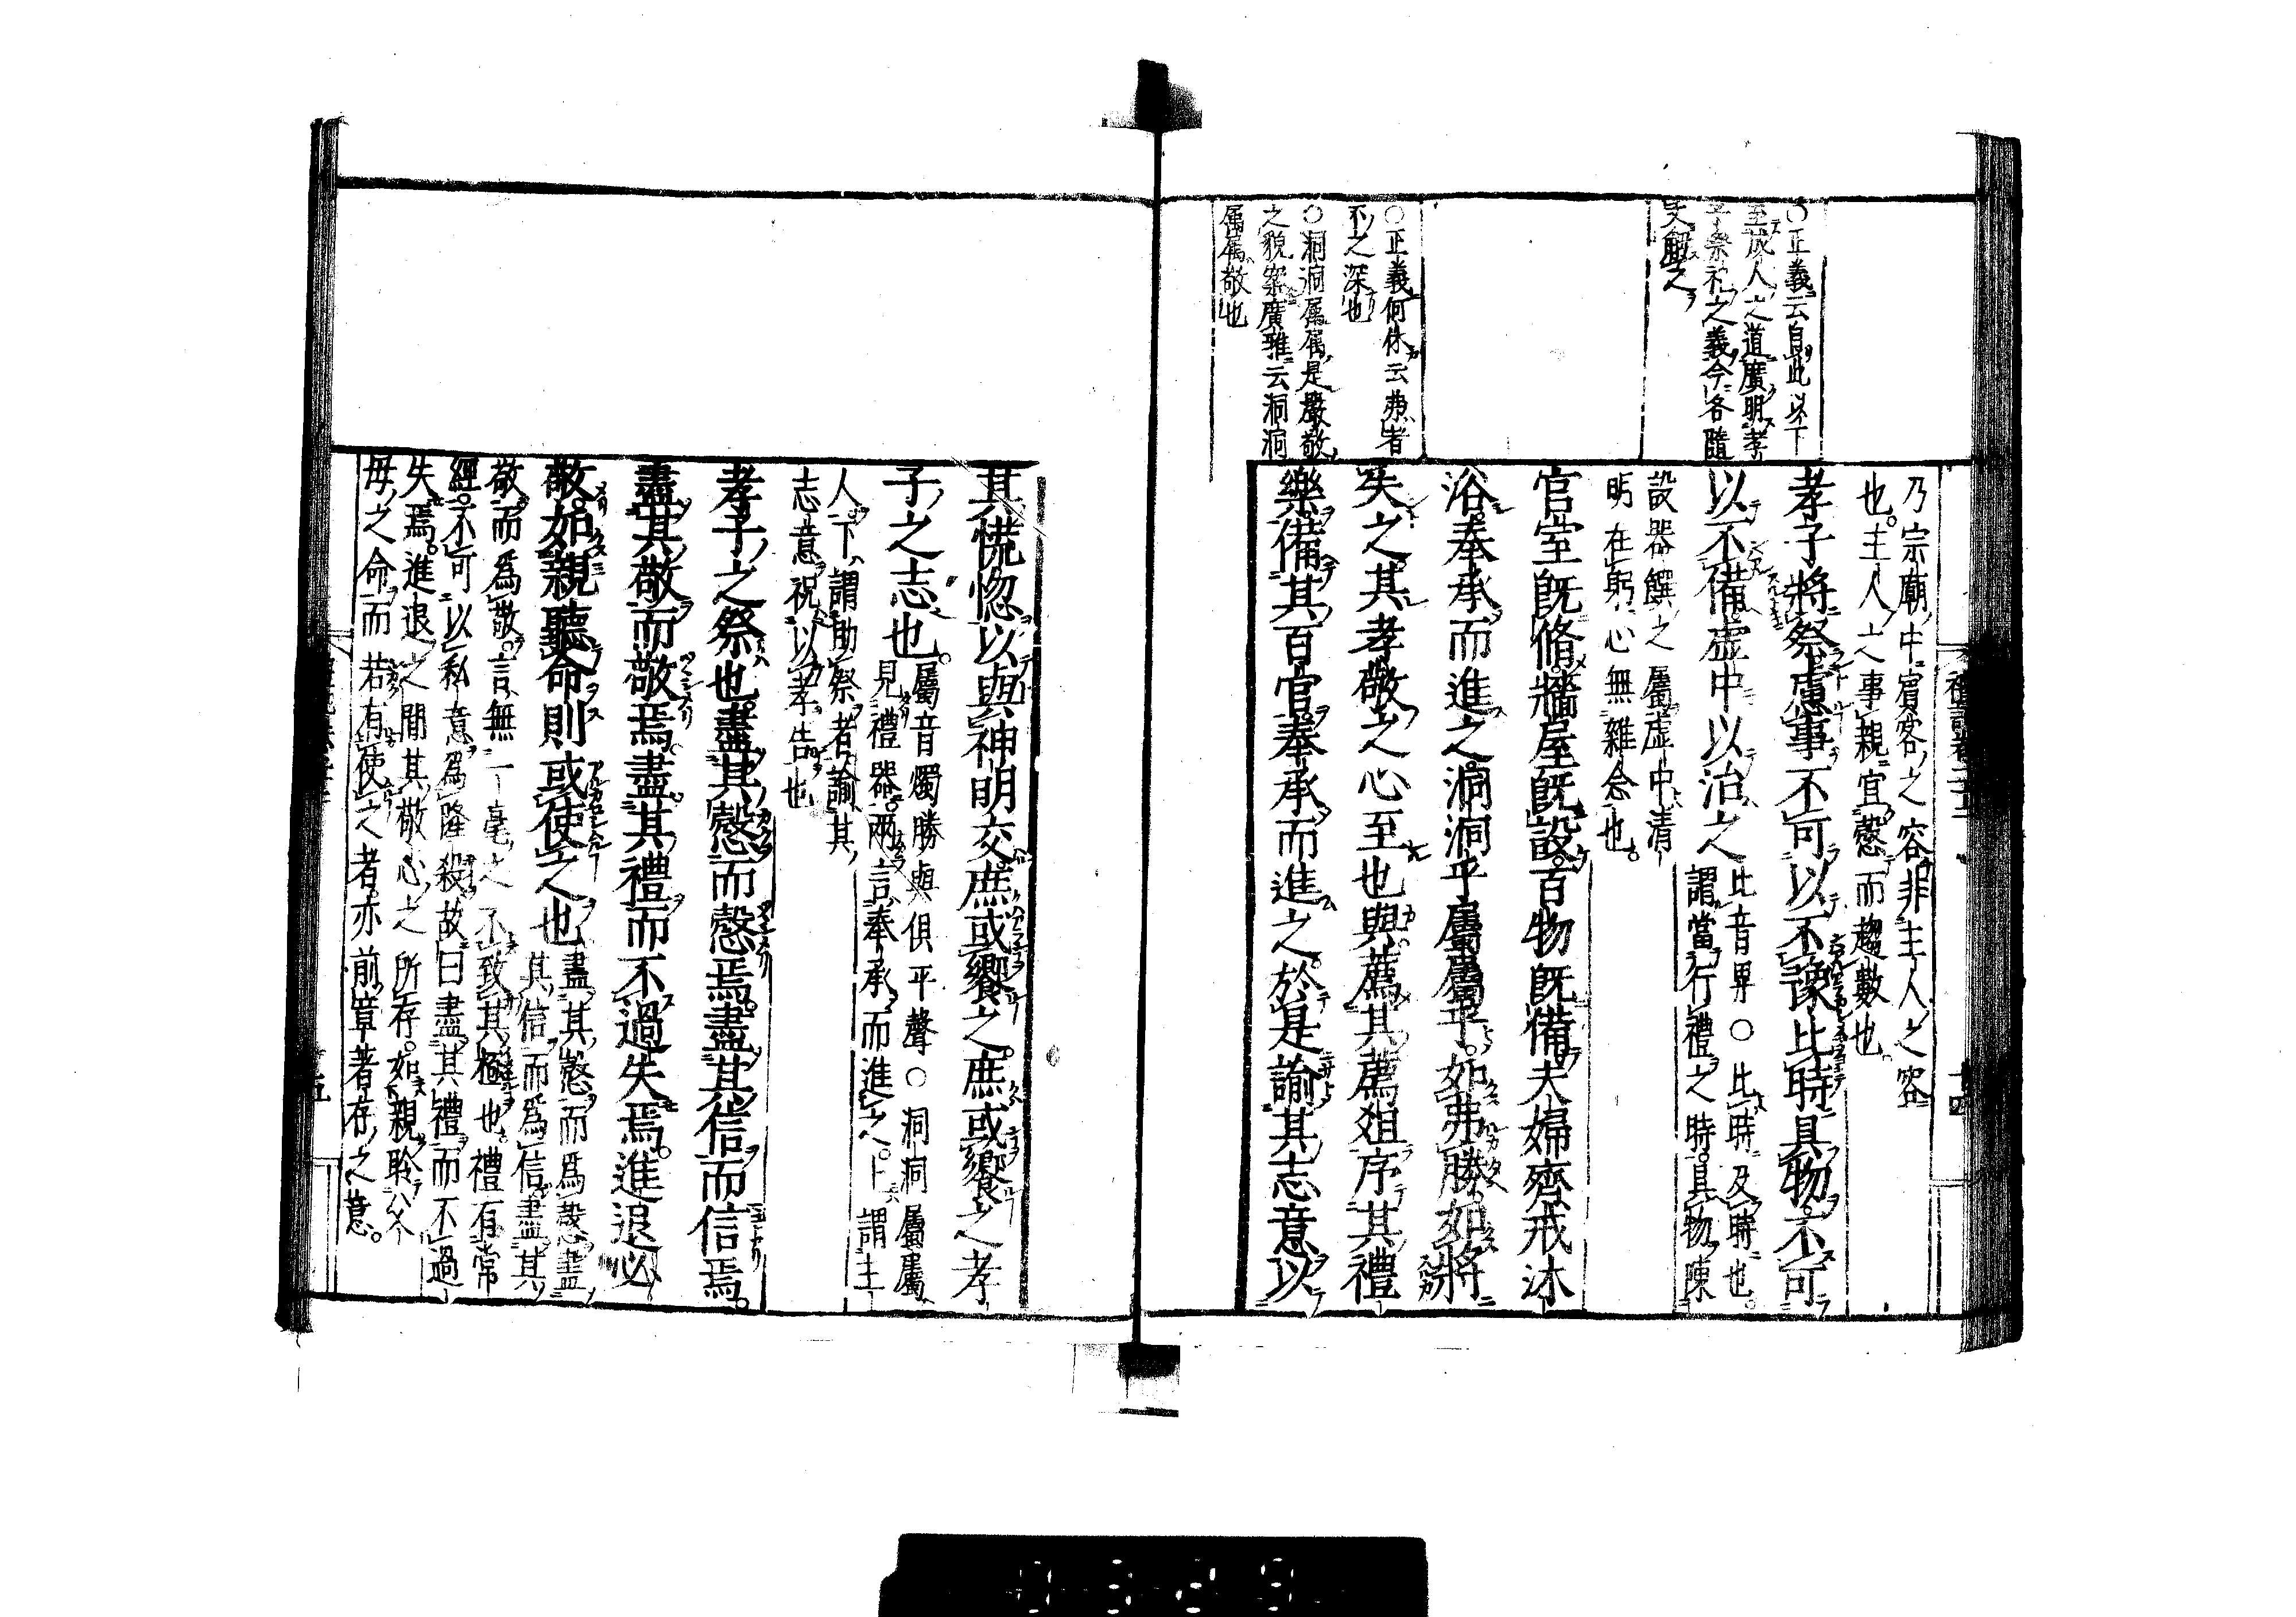 ○正義云自此以下
至成人之道廣明孝
子祭祀之義今各隨
文解之
○正義何休云弗者
不之深也
○洞洞属属是嚴敬
之貌案廣雅云洞洞
属属敬也
乃宗廟中賓客之容非主人之容
也主人之事親宜愨而趨數也
孝子將祭慮事不可以不豫比時具物不可
以不備虛中以治之
比音畀○比時及時也
謂當行禮之時具物陳
設器饌之屬虛中清
明在躬心無雜念也
官室既脩牆屋既設百物既備夫婦齊戒沐
浴奉承而進之洞洞乎屬屬乎如弗勝如將
失之其孝敬之心至也與薦其薦俎序其禮
樂備其百官奉承而進之於是諭其志意以
其慌惚以與神明交庶或饗之庶或饗之孝
子之志也
屬音燭勝與俱平聲○洞洞屬屬
見禮器兩言奉承而進之上謂主
人下謂助祭者諭其
志意祝以孝告也
孝子之祭也盡其愨而愨焉盡其信而信焉
盡其敬而敬焉盡其禮而不過失焉進退必
敬如親聽命則或使之也
盡其愨而爲愨盡
其信而爲信盡其
敬而爲敬言無一毫之不致其極也禮有常
經不可以私意爲隆殺故曰盡其禮而不過
失焉進退之間其敬心之所存如親聆父
母之命而若有使之者亦前章著存之意
五